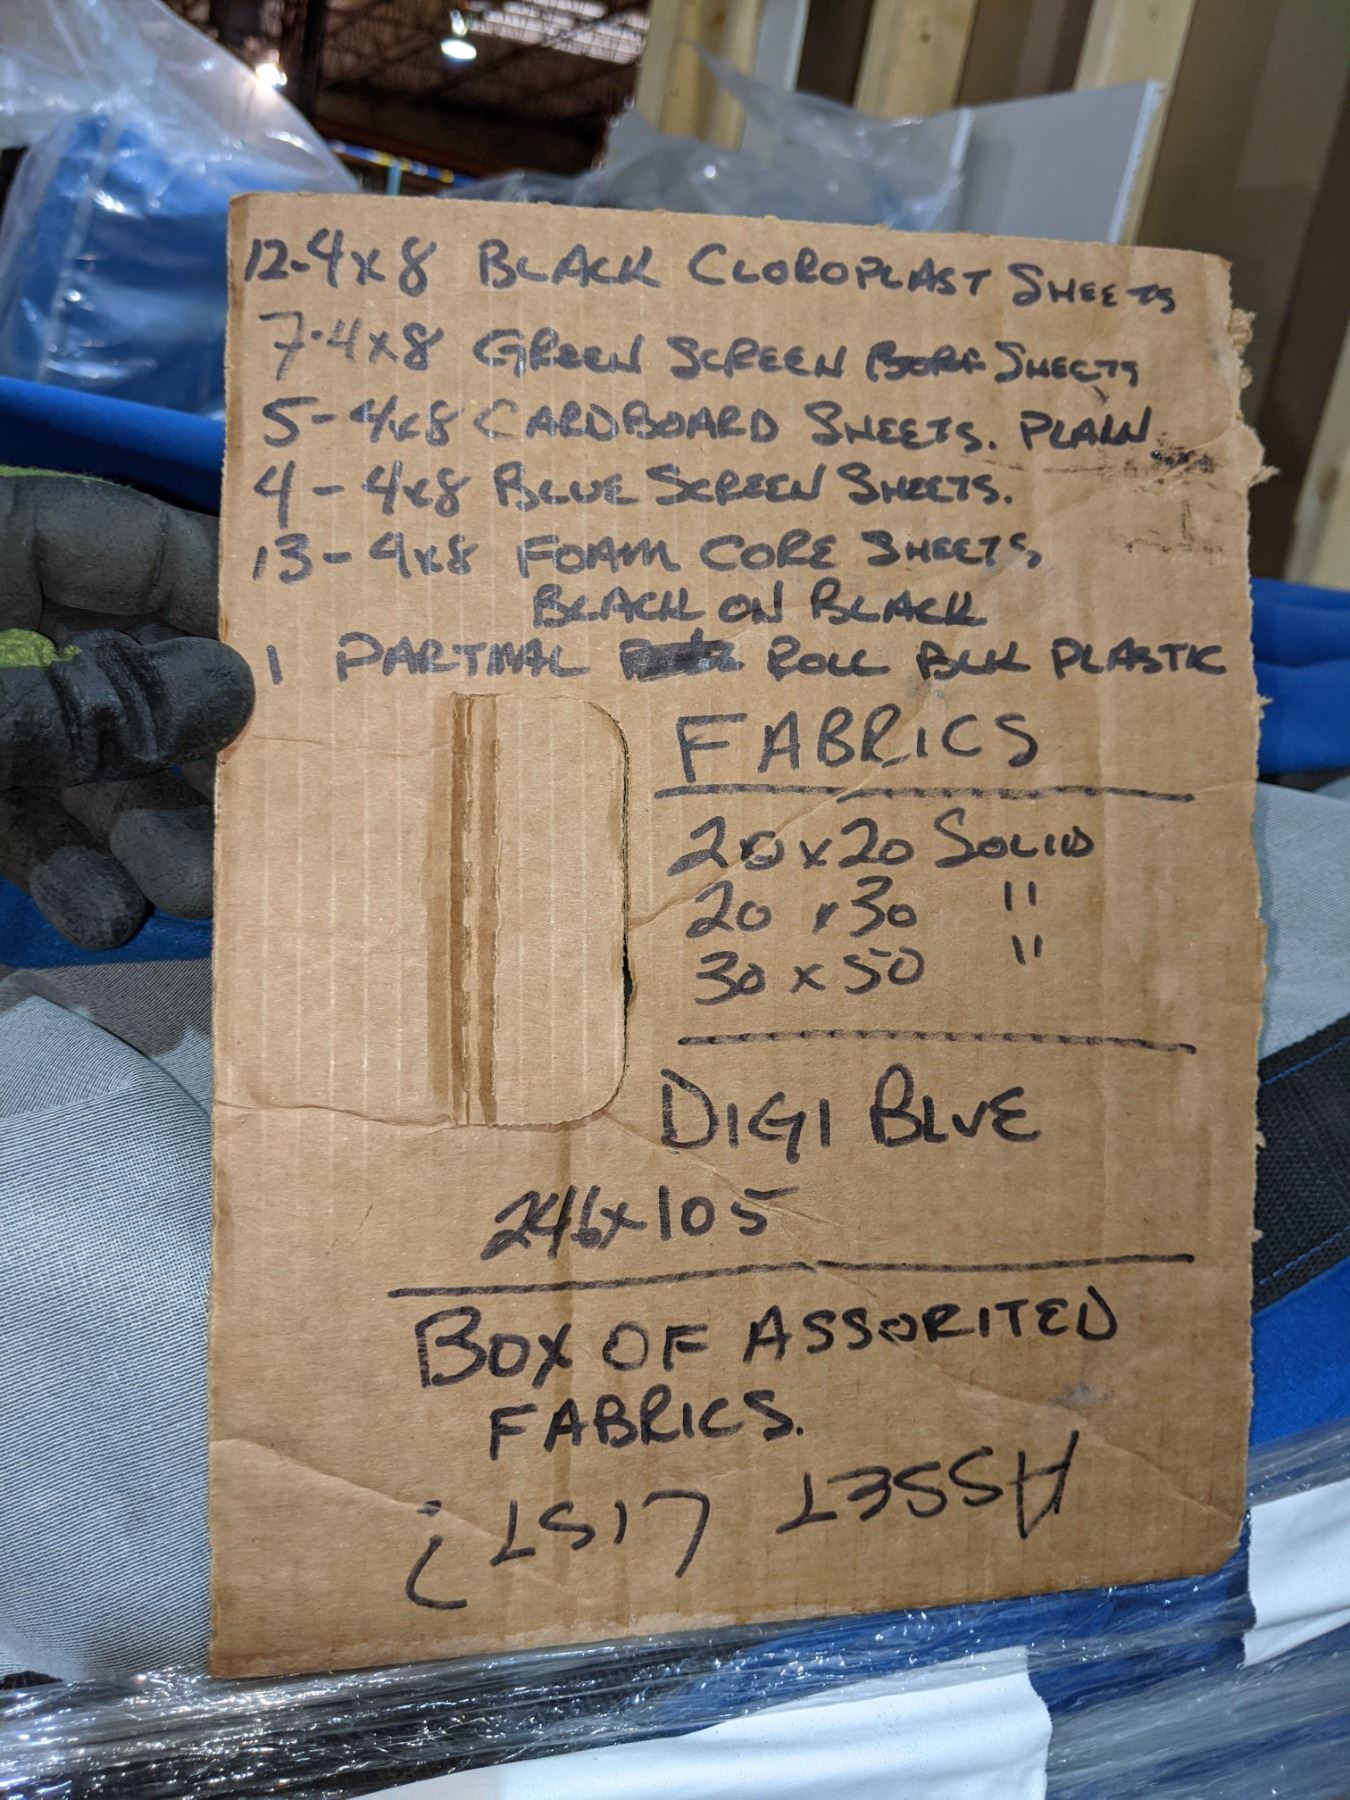 12-4x8 BLACK CLOROPLAST SHEETS
7-4x8 GREEN SCREEN SHEETS
5-4x8 CARDBOARD SHEETS. PLAIN
4-4x8 BLUE SCREEN SHEETS.
13-4x8 FOAM CORE SHEETS,
BLACK ON BLACK
1 PARTIAL ROLL BLK PLASTIC
FABRICS
20x20 SOLID
20x30 "
30x50 "
DIGI BLUE
246x105
BOX OF ASSORITED
FABRICS.
ASSET LIST?